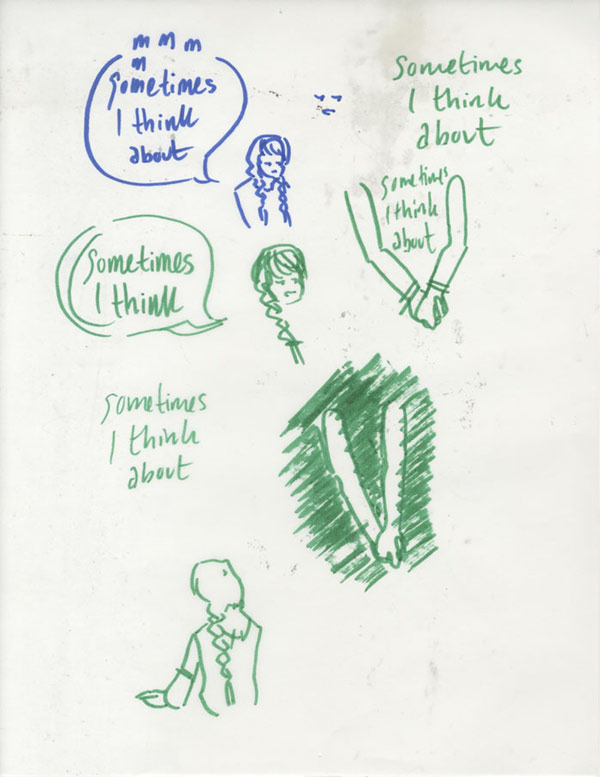 m m m
m
sometimes
I think
about
Sometimes
I think
about
sometimes
I think
about
Sometimes
I think
sometimes
I think
about